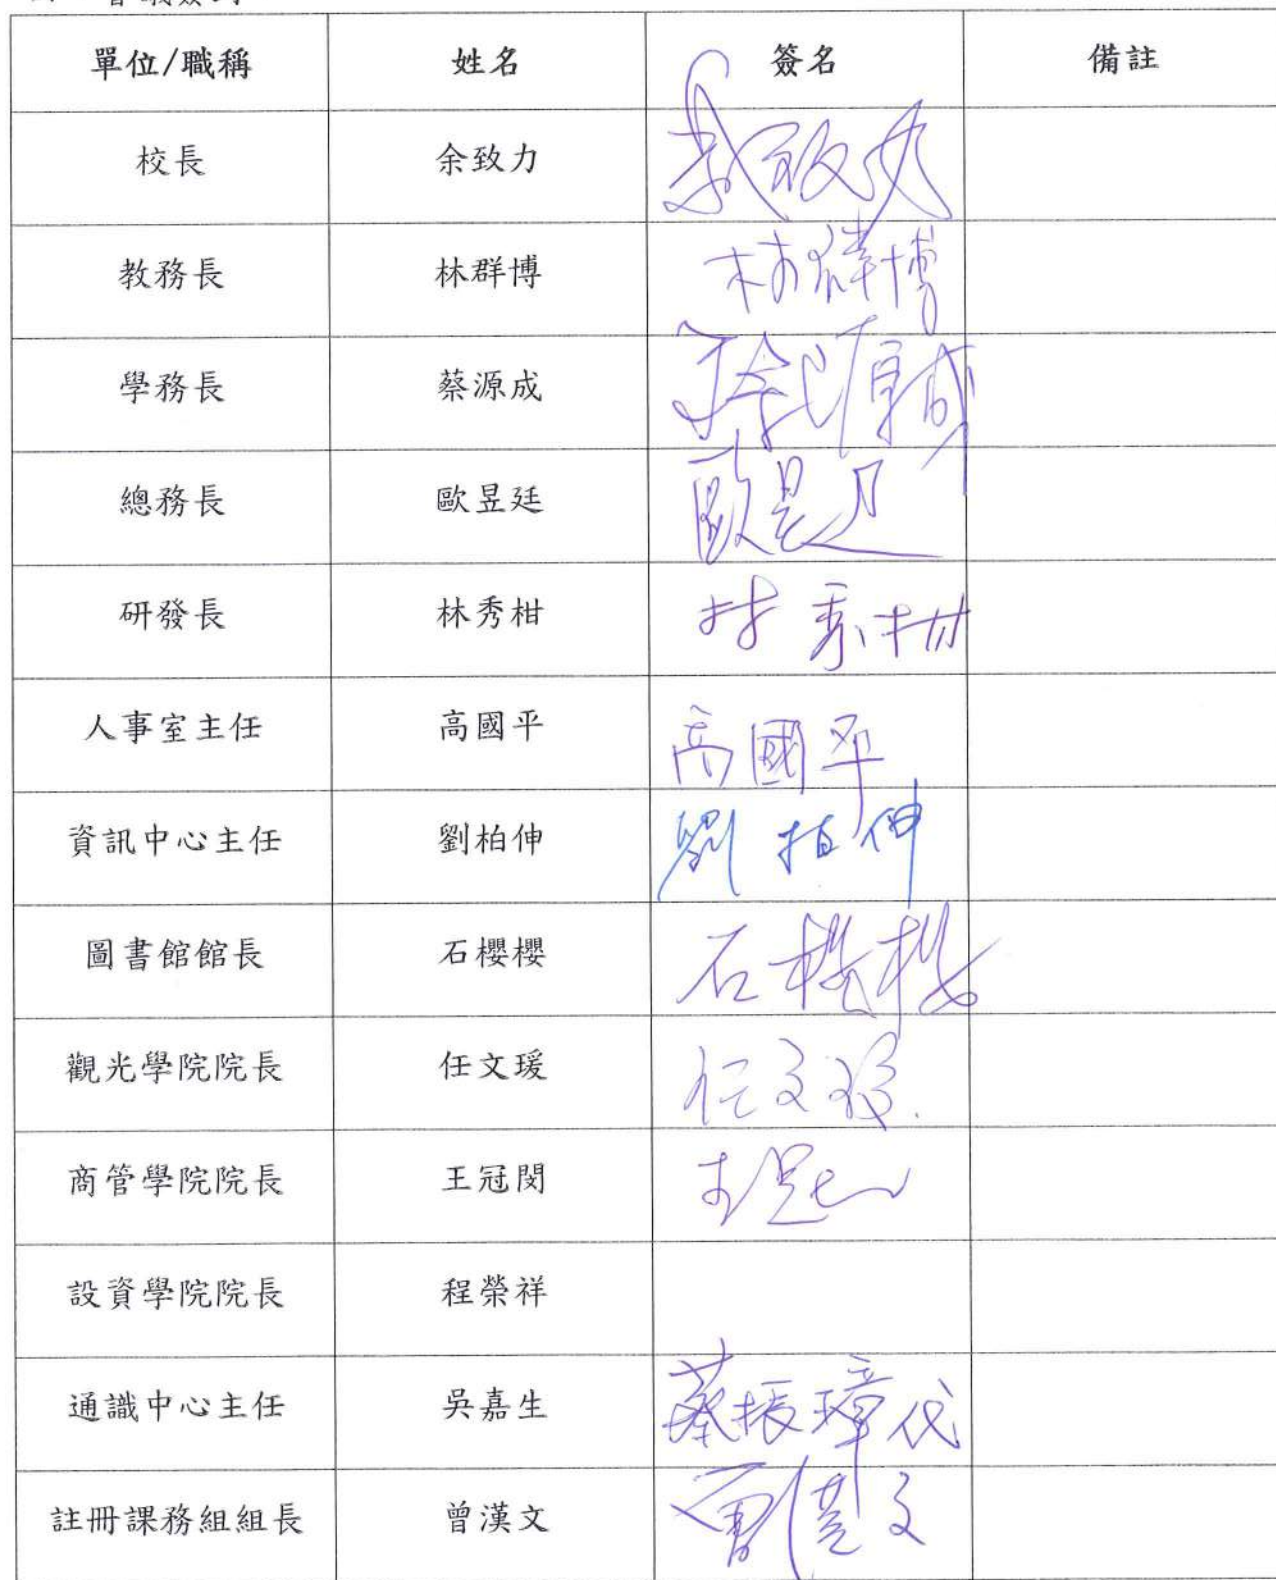 單位/職稱 姓名 簽名 備註
校長 余致力 余致力
教務長 林群博 林群博
學務長 蔡源成
總務長 歐昱廷 歐昱廷
研發長 林秀柑 林秀柑
人事室主任 高國平 高國平
資訊中心主任 劉柏伸 劉柏伸
圖書館館長 石櫻櫻 石櫻櫻
觀光學院院長 任文瑗 任文瑗
商管學院院長 王冠閔
設資學院院長 程榮祥
通識中心主任 吳嘉生 蔡振璋代
註冊課務組組長 曾漢文 曾漢文